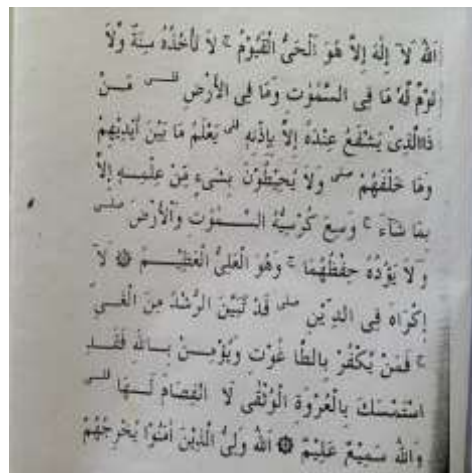 اَللهُ لَآ اِلٰهَ اِلاَّ هُوَ اَلْحَىُّ الْقَيُّوْمُ ۚ لَا تَأْخُذُهُ سِنَةٌ وَّلَا
نَوْمٌ لَهُ مَا فِى السَّمٰوٰت وَمَا فِى الْأَرْضِ ۗ مَنْ
ذَاالَّذِىْ يَشْفَعُ عِنْدَهُ اِلاَّ بِإِذْنِهِ ۗ يَعْلَمُ مَا بَيْنَ اَيْدِيْهِمْ
وَمَا خَلْفَهُمْ ۖ وَلَا يُحِيْطُوْنَ بِشَىْءٍ مِّنْ عِلْمِهِ اِلاَّ
بِمَا شَآءَ ۚ وَسِعَ كُرْسِيُّهُ السَّمٰوٰت وَالْأَرْضَ ۖ
وَلَا يَؤُدُهُ حِفْظُهُمَا ۚ وَهُوَ الْعَلِىُّ الْعَظِيْمُ ۞ لَآ
اِكْرَاهَ فِى الدِّيْنِ ۖ قَدْ تَّبَيَّنَ الرُّشْدُ مِنَ الْغَىِّ
ۚ فَمَنْ يَّكْفُرْ بِالطَّا غُوْتِ وَيُؤْمِنْ بِاللهِ فَقَدِ
اسْتَمْسَكَ بِالْعُرْوَةِ الْوُثْقٰى لَا انْفِصَامَ لَهَا ۗ
وَاللهُ سَمِيْعٌ عَلِيْمٌ ۞ اَللهُ وَلِىُّ الَّذِيْنَ اٰمَنُوْا يُخْرِجُهُمْ